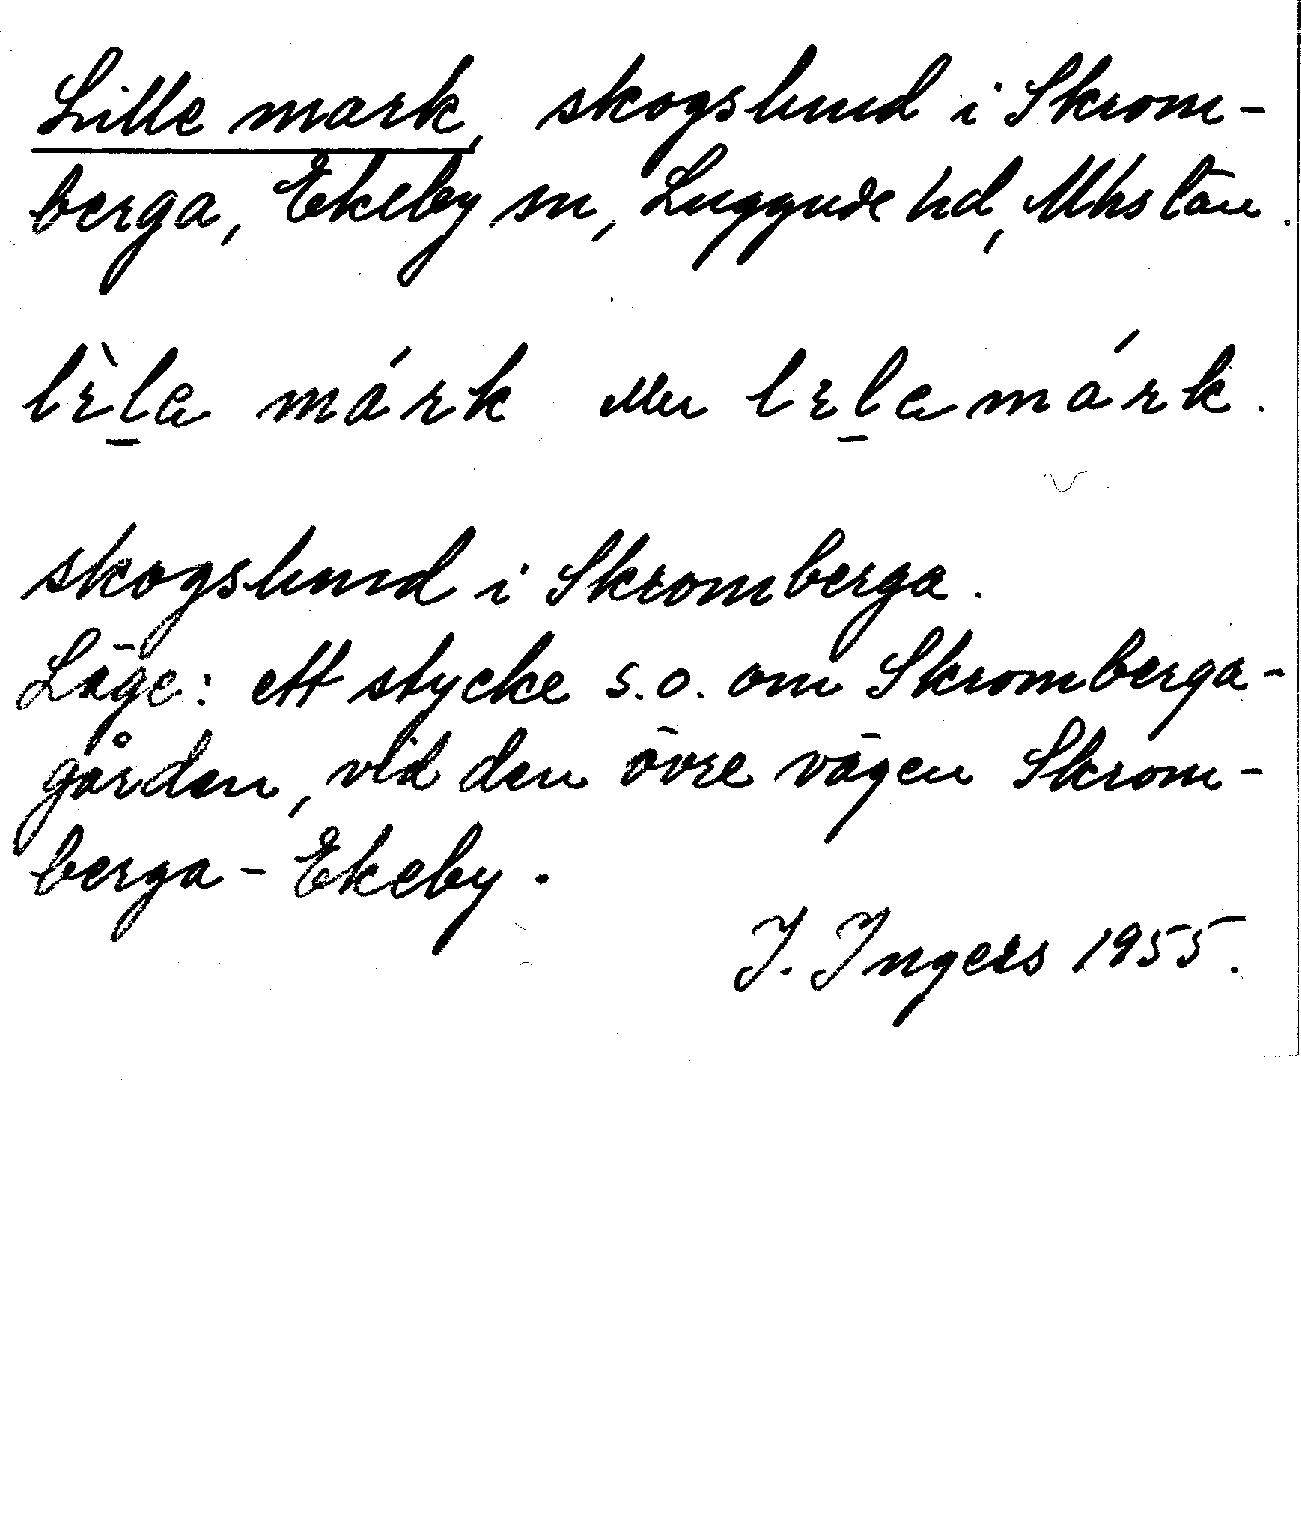 Lille mark, skogslund i Skrom-
berga, Ekeby sn, Luggude hd, Mhs län.
lìla márk eller lɛlamárk.
skogslund i Skromberga.
Läge: ett stycke s.o. om Skromberga-
gården, vid den övre vägen Skrom-
berga - Ekeby.
I. Ingers 1955.